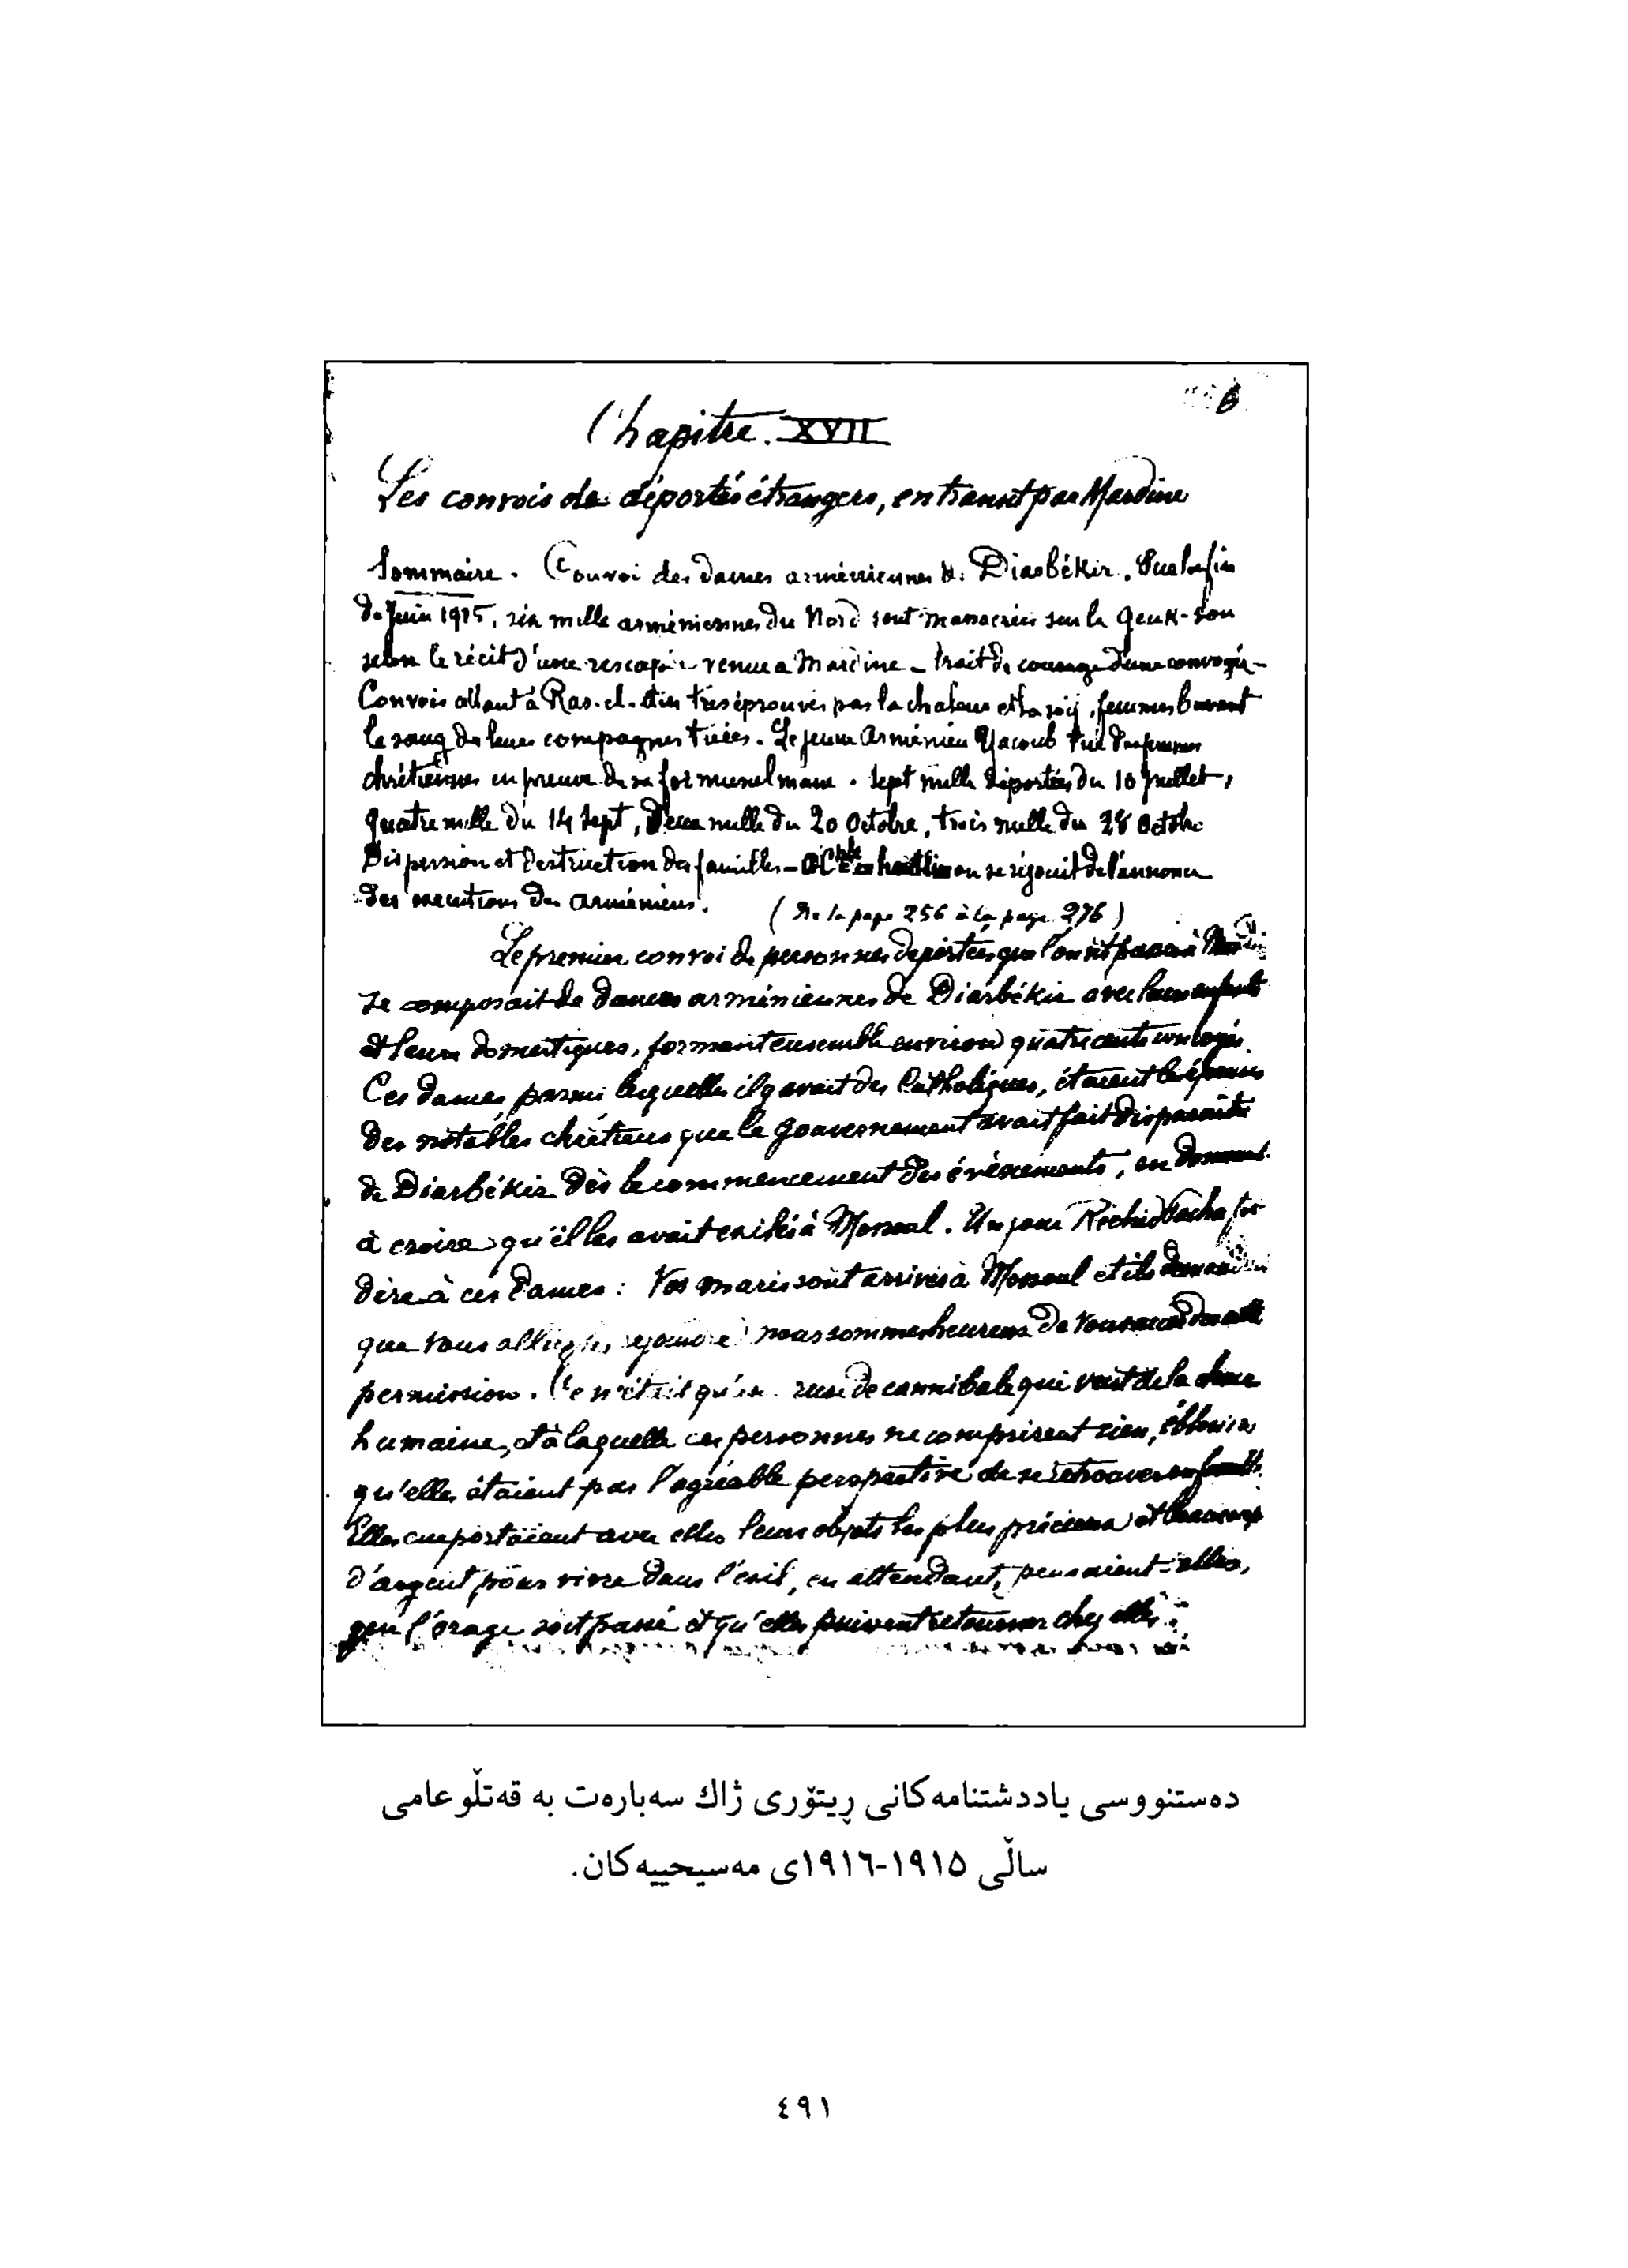 Chapitre. XVII
Les convois de déportés étrangers, en transit par Mardine
Sommaire. Convoi des dames arméniennes de Diarbékir. Sur la fin
de Juin 1915, six mille arméniennes du Nord sont massacrées sur le Geuk-Sou
selon le récit d'une rescapée venue à Mardine – trait de courage d'une convoyée –
Convois allant à Ras-el-Aïn très éprouvés par la chaleur et la soif, femmes buvant
le sang de leurs compagnes tuées. Le jeune Arménien Yacoub tue des femmes
chrétiennes en preuve de sa foi musulmane. Sept mille déportées du 10 Juillet,
quatre mille du 14 Sept, deux mille du 20 Octobre, trois mille du 28 Octobre
Dispersion et destruction des familles – on se réjouit de l'annonce
des exécutions des Arméniens. (De la page 256 à la page 276)
Le premier convoi de personnes déportées que l'on vit passer à
se composait de dames arméniennes de Diarbékir avec leurs enfants
et leurs domestiques, formant ensemble environ quatre cents convoyés.
Ces dames, parmi lesquelles il y avait des Catholiques, étaient les épouses
des notables chrétiens que le Gouvernement avait fait disparaître
de Diarbékir dès le commencement des évènements, en donnant
à croire qu'il les avait exilés à Mossoul. Un jour Réchid Pacha fit
dire à ces Dames : Vos maris sont arrivés à Mossoul et ils demandent
que vous alliez les rejoindre nous sommes heureux de vous
permission. Ce n'était qu'une ruse de cannibale qui veut de la chair
humaine, et à laquelle ces personnes ne comprirent rien, éblouies
qu'elles étaient par l'agréable perspective de se retrouver en famille.
Elles emportaient avec elles leurs objets les plus précieux et beaucoup
d'argent pour vivre dans l'exil, en attendant, pensaient-elles,
que l'orage soit passé et qu'elles puissent retourner chez elles
دەستنووسی یاددشتنامەکانی ڕیتۆری ژاك سەبارەت بە قەتڵوعامی
ساڵی ١٩١٥-١٩١٦ی مەسیحییەکان.
٤٩١